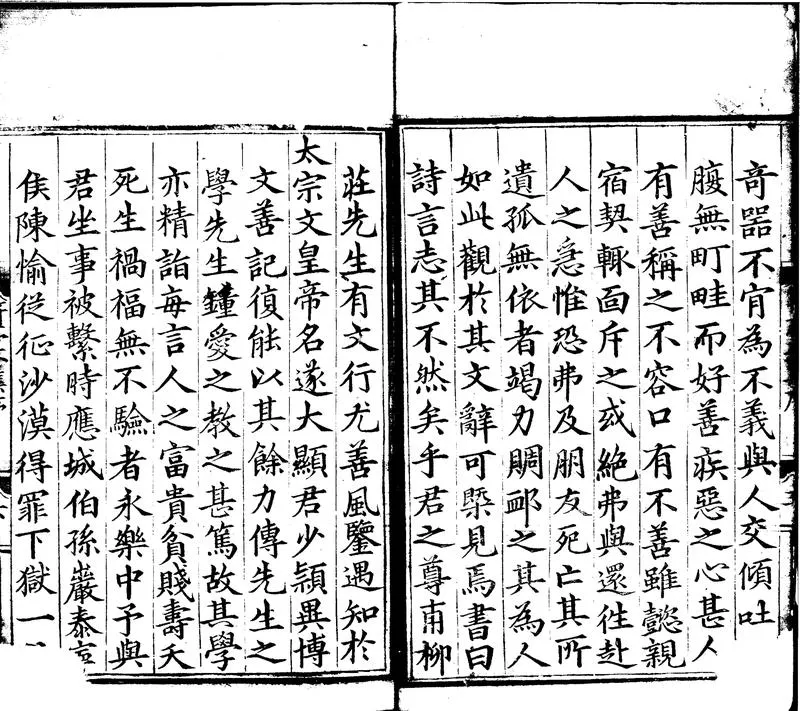 奇噐不肎為不義與人交傾吐
腹無町畦而好善疾惡之心甚人
有善稱之不容口有不善雖懿親
宿契輙面斥之或絶弗與還徃赴
人之急惟恐弗及朋友死亡其所
遺孤無依者竭力賙卹之其為人
如此觀於其文辭可槩見焉書曰
詩言志其不然矣乎君之尊甫柳
莊先生有文行尤善風鑒遇知於
太宗文皇帝名遂大顯君少頴異博
文善記復能以其餘力傳先生之
學先生鐘愛之教之甚篤故其學
亦精詣毎言人之富貴貧賤壽夭
死生禍福無不驗者永樂中予與
君坐事被繫時應城伯孫巖泰
侯陳愉從征沙漠得罪下獄一